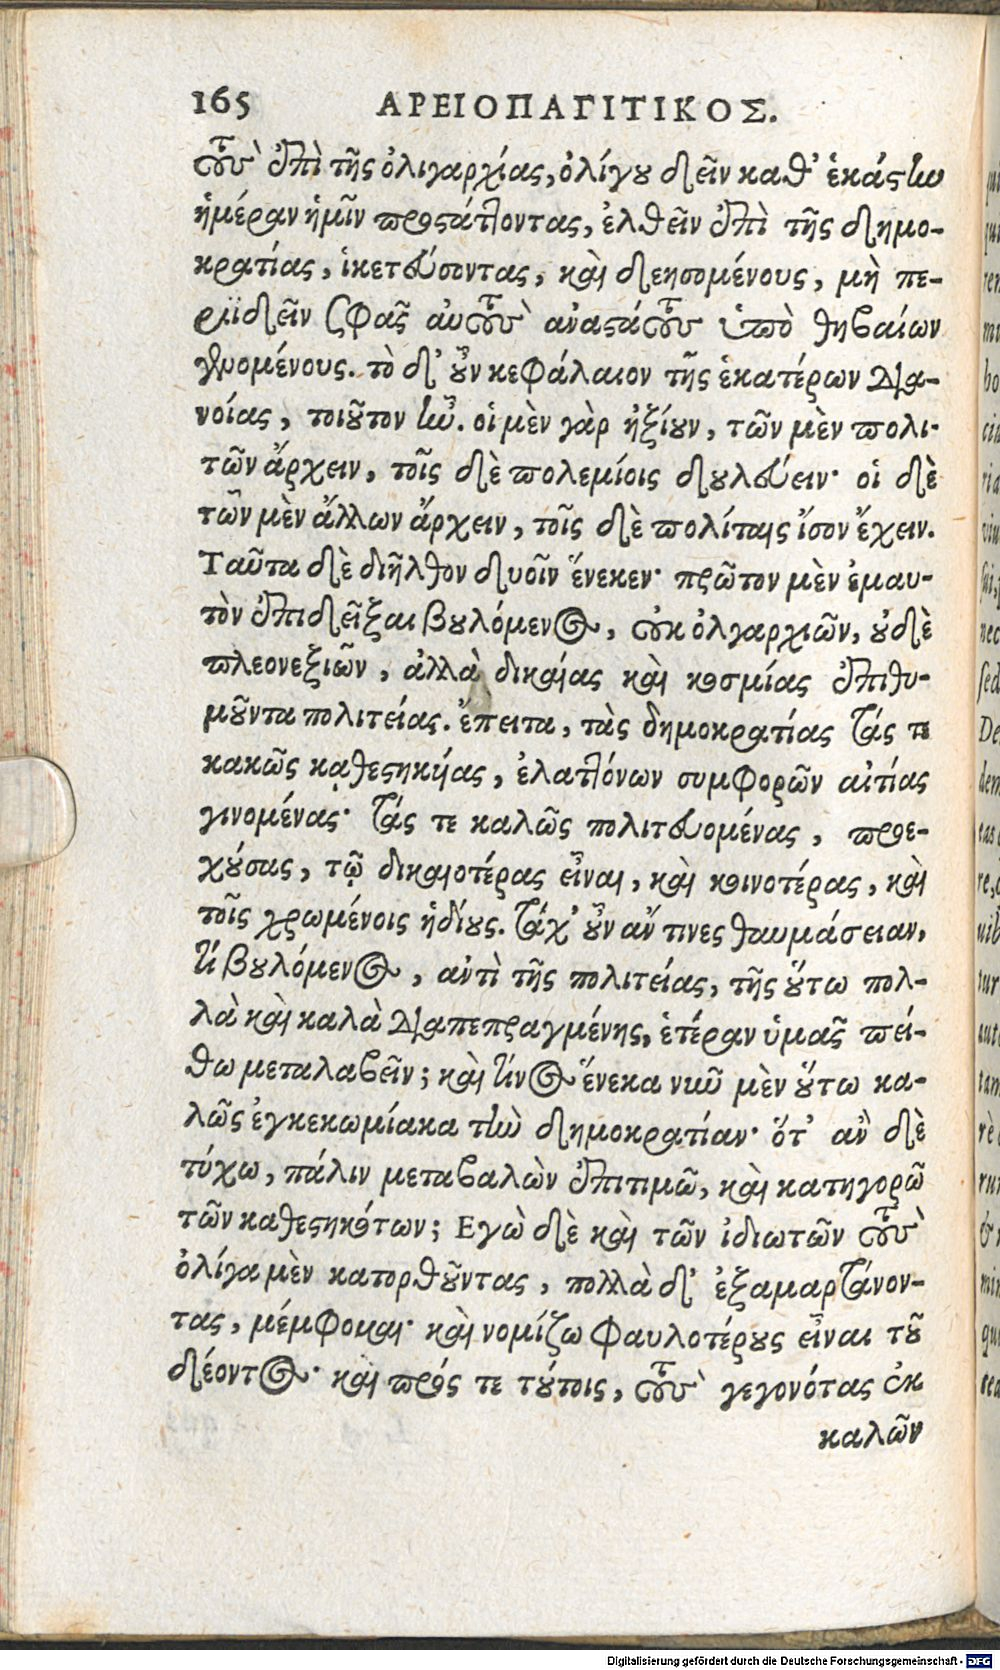 165 ΑΡΕΙΟΠΑΓΙΤΙΚΟΣ.
τοὺς ἐπὶ τῆς ὀλιγαρχίας, ὀλίγου δεῖν καθ' ἑκάστην
ἡμέραν ἡμῖν προστάττοντας, ἐλθεῖν ἐπὶ τῆς δημο-
κρατίας, ἱκετεύσοντας, καὶ δεησομένους, μὴ πε-
ριϊδεῖν σφᾶς αὐτοὺς ἀναστάτους ὑπὸ θηβαίων
γενομένους. τὸ δ' οὖν κεφάλαιον τῆς ἑκατέρων δια-
νοίας, τοιοῦτον ἦν. οἱ μὲν γὰρ ἠξίουν, τῶν μὲν πολι-
τῶν ἄρχειν, τοῖς δὲ πολεμίοις δουλεύειν· οἱ δὲ
τῶν μὲν ἄλλων ἄρχειν, τοῖς δὲ πολίταις ἴσον ἔχειν.
Ταῦτα δὲ διῆλθον δυοῖν ἕνεκεν· πρῶτον μὲν ἐμαυ-
τὸν ἐπιδεῖξαι βουλόμενος, οὐκ ὀλγαρχιῶν, οὐδὲ
πλεονεξιῶν, ἀλλὰ δικαίας καὶ κοσμίας ἐπιθυ-
μοῦντα πολιτείας. ἔπειτα, τὰς δημοκρατίας τάς τε
κακῶς καθεστηκυίας, ἐλαττόνων συμφορῶν αἰτίας
γινομένας· τάς τε καλῶς πολιτευομένας, προε-
χούσας, τῷ δικαιοτέρας εἶναι, καὶ κοινοτέρας, καὶ
τοῖς χρωμένοις ἡδίους. Τάχ' οὖν ἄν τινες θαυμάσειαν,
τί βουλόμενος, ἀντὶ τῆς πολιτείας, τῆς οὕτω πολ-
λὰ καὶ καλὰ διαπεπραγμένης, ἑτέραν ὑμᾶς πεί-
θω μεταλαβεῖν; καὶ τίνος ἕνεκα νῦν μὲν οὕτω κα-
λῶς ἐγκεκωμίακα τὴν δημοκρατίαν· ὅτ' ἂν δὲ
τύχω, πάλιν μεταβαλὼν ἐπιτιμῶ, καὶ κατηγορῶ
τῶν καθεστηκότων; Εγὼ δὲ καὶ τῶν ἰδιωτῶν τοὺς
ὀλίγα μὲν κατορθοῦντας, πολλὰ δ' ἐξαμαρτάνον-
τας, μέμφομαι· καὶ νομίζω φαυλοτέρους εἶναι τοῦ
δέοντος· καὶ πρός τε τούτοις, τοὺς γεγονότας ἐκ
καλῶν
Digitalisierung gefördert durch die Deutsche Forschungsgemeinschaft - DFG